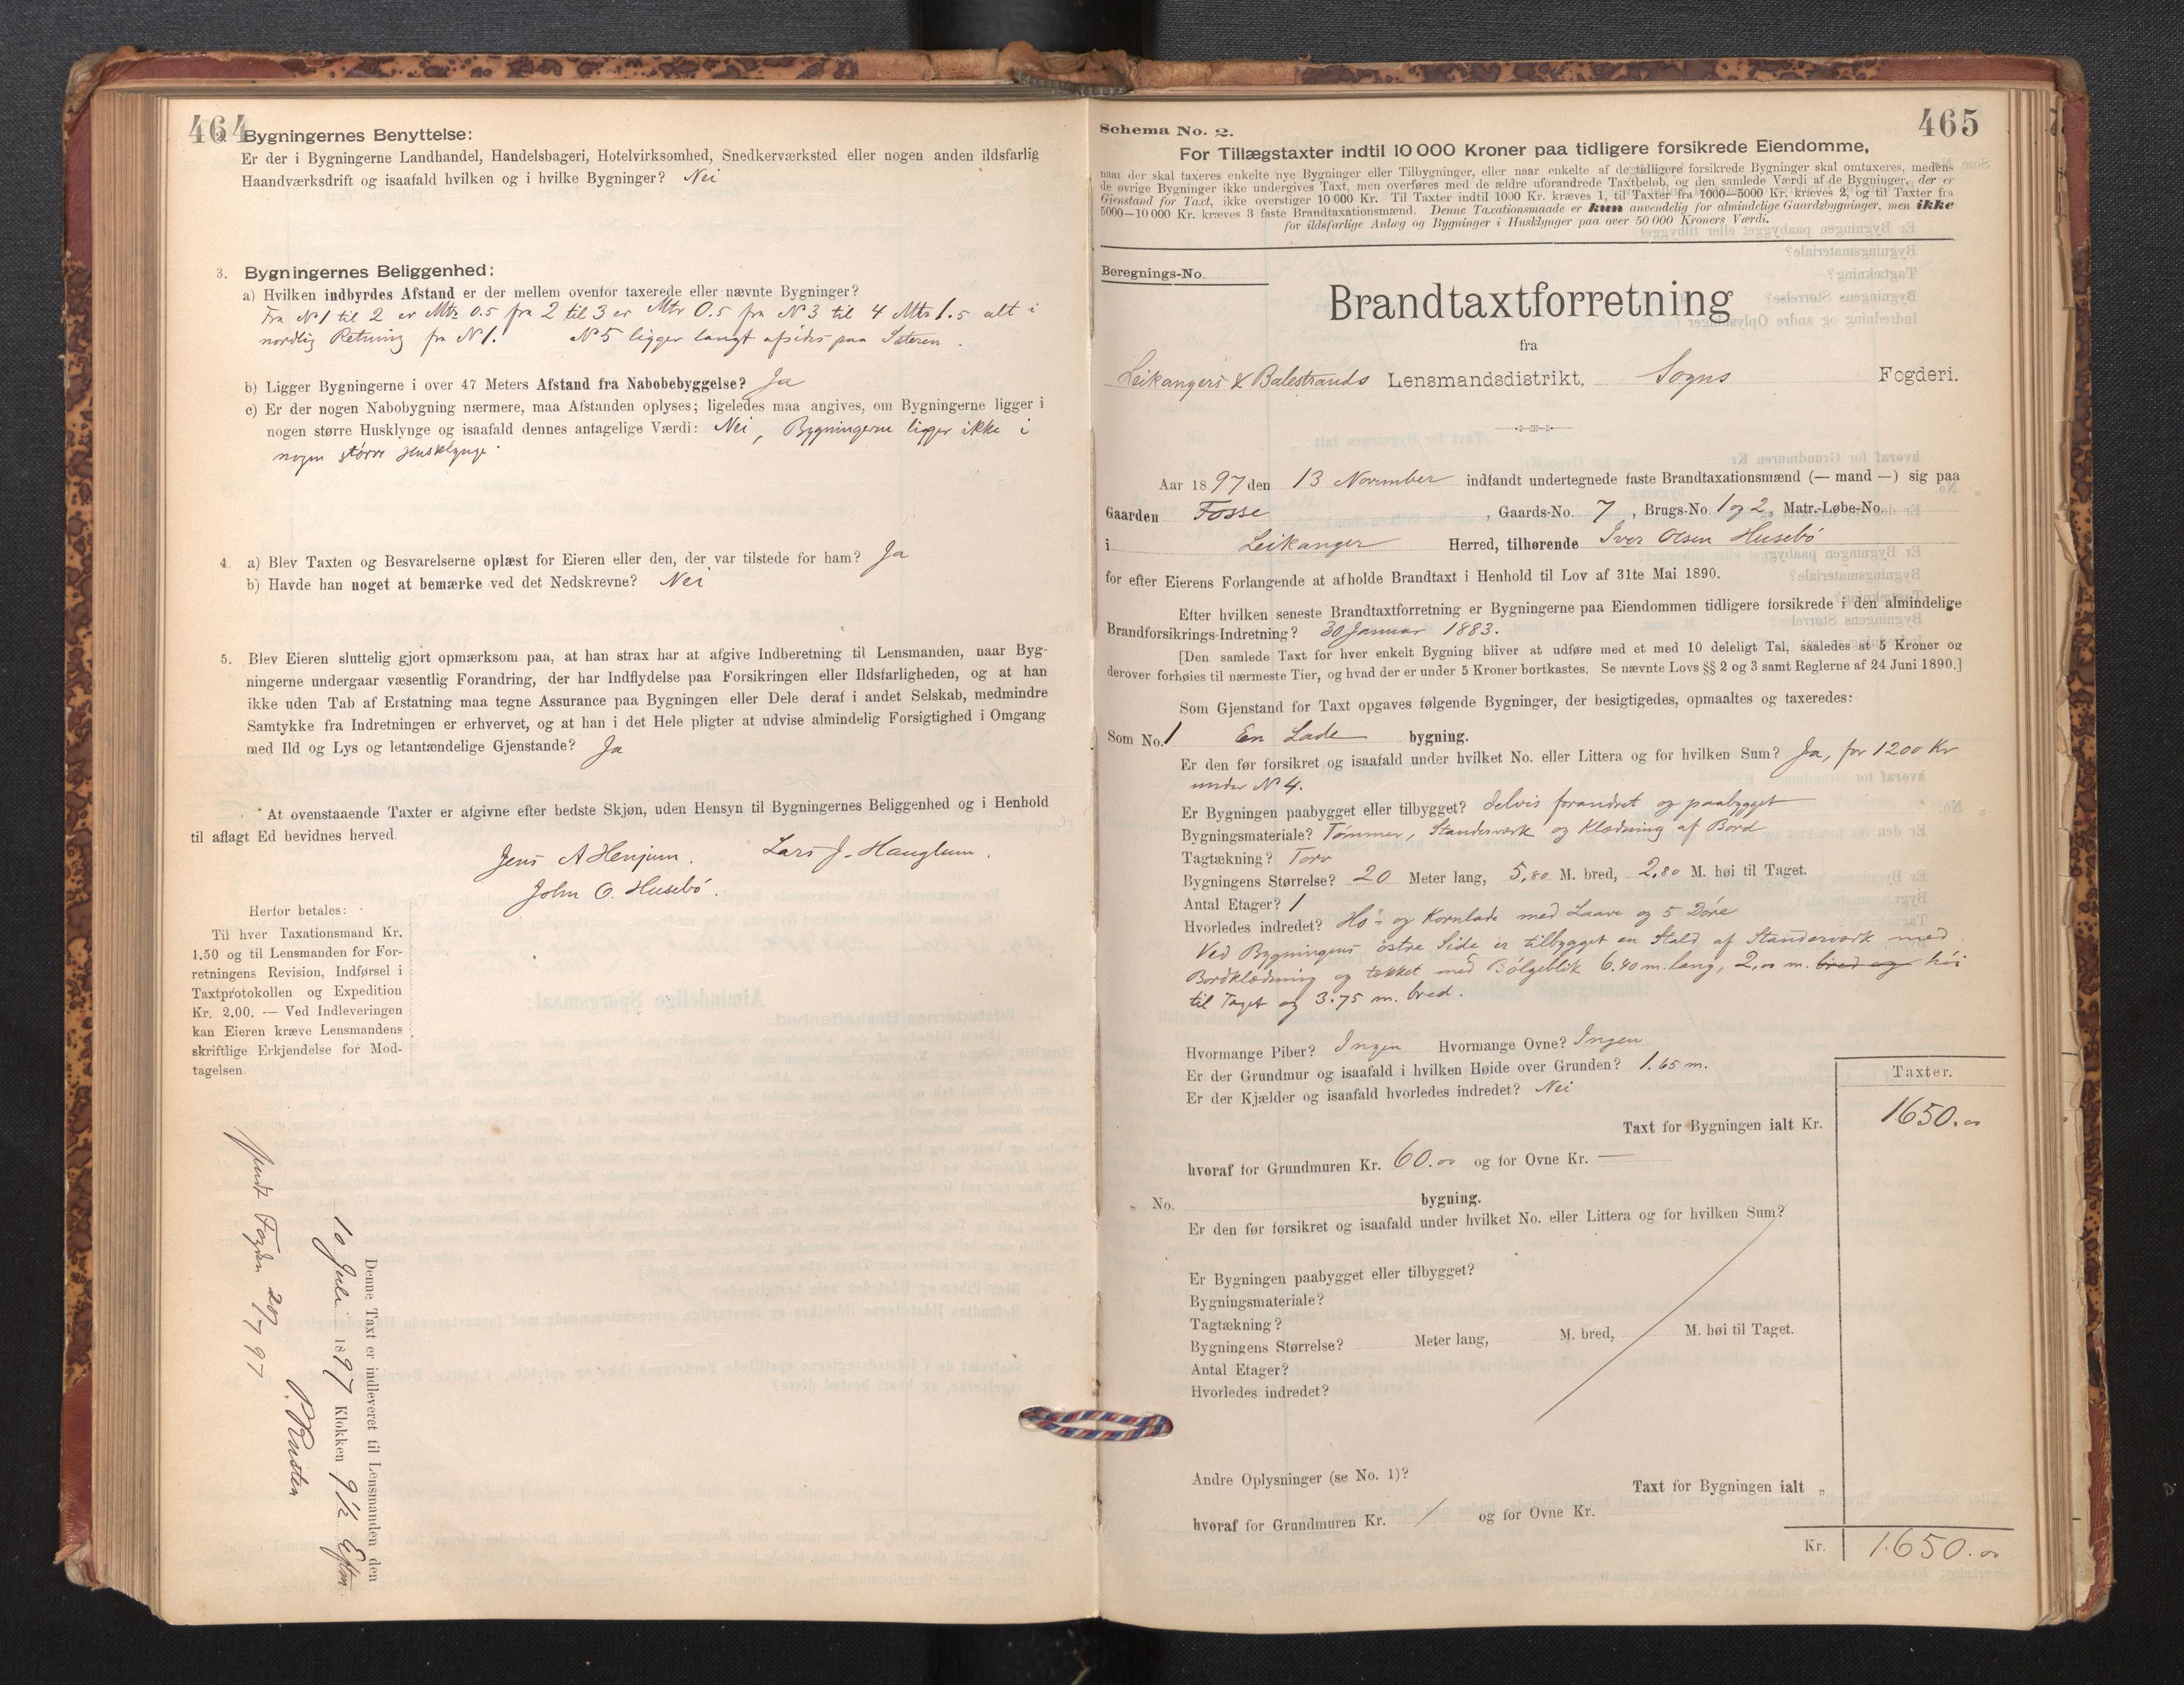 464
2. Bygningernes Benyttelse:
Er der i Bygningerne Landhandel, Handelsbageri, Hotelvirksomhed, Snedkerværksted eller nogen anden ildsfarlig
Haandværksdrift og isaafald hvilken og i hvilke Bygninger? Nei
3. Bygningernes Beliggenhed:
a) Hvilken indbyrdes Afstand er der mellem ovenfor taxerede eller nævnte Bygninger?
Fra No 1 til 2 er Mtr 0.5 fra 2 til 3 er Mtr 0.5 fra No 3 til 4 Mtr 1.5 alt i
nordlig Retning fra No 1. No 5 ligger langt afsides paa Sæteren.
b) Ligger Bygningerne i over 47 Meters Afstand fra Nabobebyggelse? Ja
c) Er der nogen Nabobygning nærmere, maa Afstanden oplyses; ligeledes maa angives, om Bygningerne ligger i
nogen større Husklynge og isaafald dennes antagelige Værdi: Nei, Bygningerne ligger ikke i
nogen større Husklynge.
4. a) Blev Taxten og Besvarelserne oplæst for Eieren eller den, der var tilstede for ham? Ja
b) Havde han noget at bemærke ved det Nedskrevne? Nei
5. Blev Eieren sluttelig gjort opmærksom paa, at han strax har at afgive Indberetning til Lensmanden, naar Byg-
ningerne undergaar væsentlig Forandring, der har Indflydelse paa Forsikringen eller Ildsfarligheden, og at han
ikke uden Tab af Erstatning maa tegne Assurance paa Bygningen eller Dele deraf i andet Selskab, medmindre
Samtykke fra Indretningen er erhvervet, og at han i det Hele pligter at udvise almindelig Forsigtighed i Omgang
med Ild og Lys og letantændelige Gjenstande? Ja
At ovenstaaende Taxter er afgivne efter bedste Skjøn, uden Hensyn til Bygningernes Beliggenhed og i Henhold
til aflagt Ed bevidnes herved
Jens A Henjum. Lars J. Hauglum.
John O. Husebö.
Herfor betales:
Til hver Taxationsmand Kr.
1.50 og til Lensmanden for For-
retningens Revision, Indførsel i
Taxtprotokollen og Expedition
Kr. 2.00. — Ved Indleveringen
kan Eieren kræve Lensmandens
skriftlige Erkjendelse for Mod-
tagelsen.
Denne Taxt er indleveret til Lensmanden den
10 Juli 1897 Klokken 9 1/2 Eftm.
Sendt Fogden 20/7 97
465
Schema No. 2.
For Tillægstaxter indtil 10 000 Kroner paa tidligere forsikrede Eiendomme,
naar der skal taxeres enkelte nye Bygninger eller Tilbygninger, eller naar enkelte af de tidligere forsikrede Bygninger skal omtaxeres, medens
de øvrige Bygninger ikke undergives Taxt, men overføres med de ældre uforandrede Taxtbeløb, og den samlede Værdi af de Bygninger, der er
Gjenstand for Taxt, ikke overstiger 10 000 Kr. Til Taxter indtil 1000 Kr. kræves 1, til Taxter fra 1000—5000 Kr. kræves 2, og til Taxter fra
5000—10 000 Kr. kræves 3 faste Brandtaxationsmænd. Denne Taxationsmaade er kun anvendelig for almindelige Gaardsbygninger, men ikke
for ildsfarlige Anlæg og Bygninger i Husklynger paa over 50 000 Kroners Værdi.
Beregnings-No.
Brandtaxtforretning
fra
Leikangers & Balestrands Lensmandsdistrikt, Sogns Fogderi.
Aar 1897 den 13 November indfandt undertegnede faste Brandtaxationsmænd (— mand —) sig paa
Gaarden Fosse, Gaards-No. 7, Brugs-No. 1 og 2, Matr.-Løbe-No.
i Leikanger Herred, tilhørende Iver Olsen Husebö
for efter Eierens Forlangende at afholde Brandtaxt i Henhold til Lov af 31te Mai 1890.
Efter hvilken seneste Brandtaxtforretning er Bygningerne paa Eiendommen tidligere forsikrede i den almindelige
Brandforsikrings-Indretning? 30 Januar 1883.
[Den samlede Taxt for hver enkelt Bygning bliver at udføre med et med 10 deleligt Tal, saaledes at 5 Kroner og
derover forhøies til nærmeste Tier, og hvad der er under 5 Kroner bortkastes. Se nævnte Lovs §§ 2 og 3 samt Reglerne af 24 Juni 1890.]
Som Gjenstand for Taxt opgaves følgende Bygninger, der besigtigedes, opmaaltes og taxeredes:
Som No. 1 En Lade bygning.
Er den før forsikret og isaafald under hvilket No. eller Littera og for hvilken Sum? Ja, for 1200 Kr
under No 4.
Er Bygningen paabygget eller tilbygget? delvis forandret og paabygget
Bygningsmateriale? Tømmer, Standerværk og Klædning af Bord
Tagtækning? Torv
Bygningens Størrelse? 20 Meter lang, 5.80 M. bred, 2.80 M. høi til Taget.
Antal Etager? 1
Hvorledes indredet? Hö- og Kornlade med Laave og 5 Döre
Ved Bygningens östre Side er tilbygget en Stald af Standerværk med
Bordklædning og tækket med Bölgeblik 6.40 m. lang, 2,00 m. bred og höi
til Taget og 3.75 m. bred.
Hvormange Piber? Ingen Hvormange Ovne? Ingen
Er der Grundmur og isaafald i hvilken Høide over Grunden? 1.65 m.
Er der Kjælder og isaafald hvorledes indredet? Nei
Taxter.
Taxt for Bygningen ialt Kr. 1650.00
hvoraf for Grundmuren Kr. 60.00 og for Ovne Kr. —
„ No. bygning.
Er den før forsikret og isaafald under hvilket No. eller Littera og for hvilken Sum?
Er Bygningen paabygget eller tilbygget?
Bygningsmateriale?
Tagtækning?
Bygningens Størrelse? Meter lang, M. bred, M. høi til Taget.
Antal Etager?
Hvorledes indredet?
Andre Oplysninger (se No. 1)?
Taxt for Bygningen ialt „
hvoraf for Grundmuren Kr. / og for Ovne Kr.
Kr. 1650.00